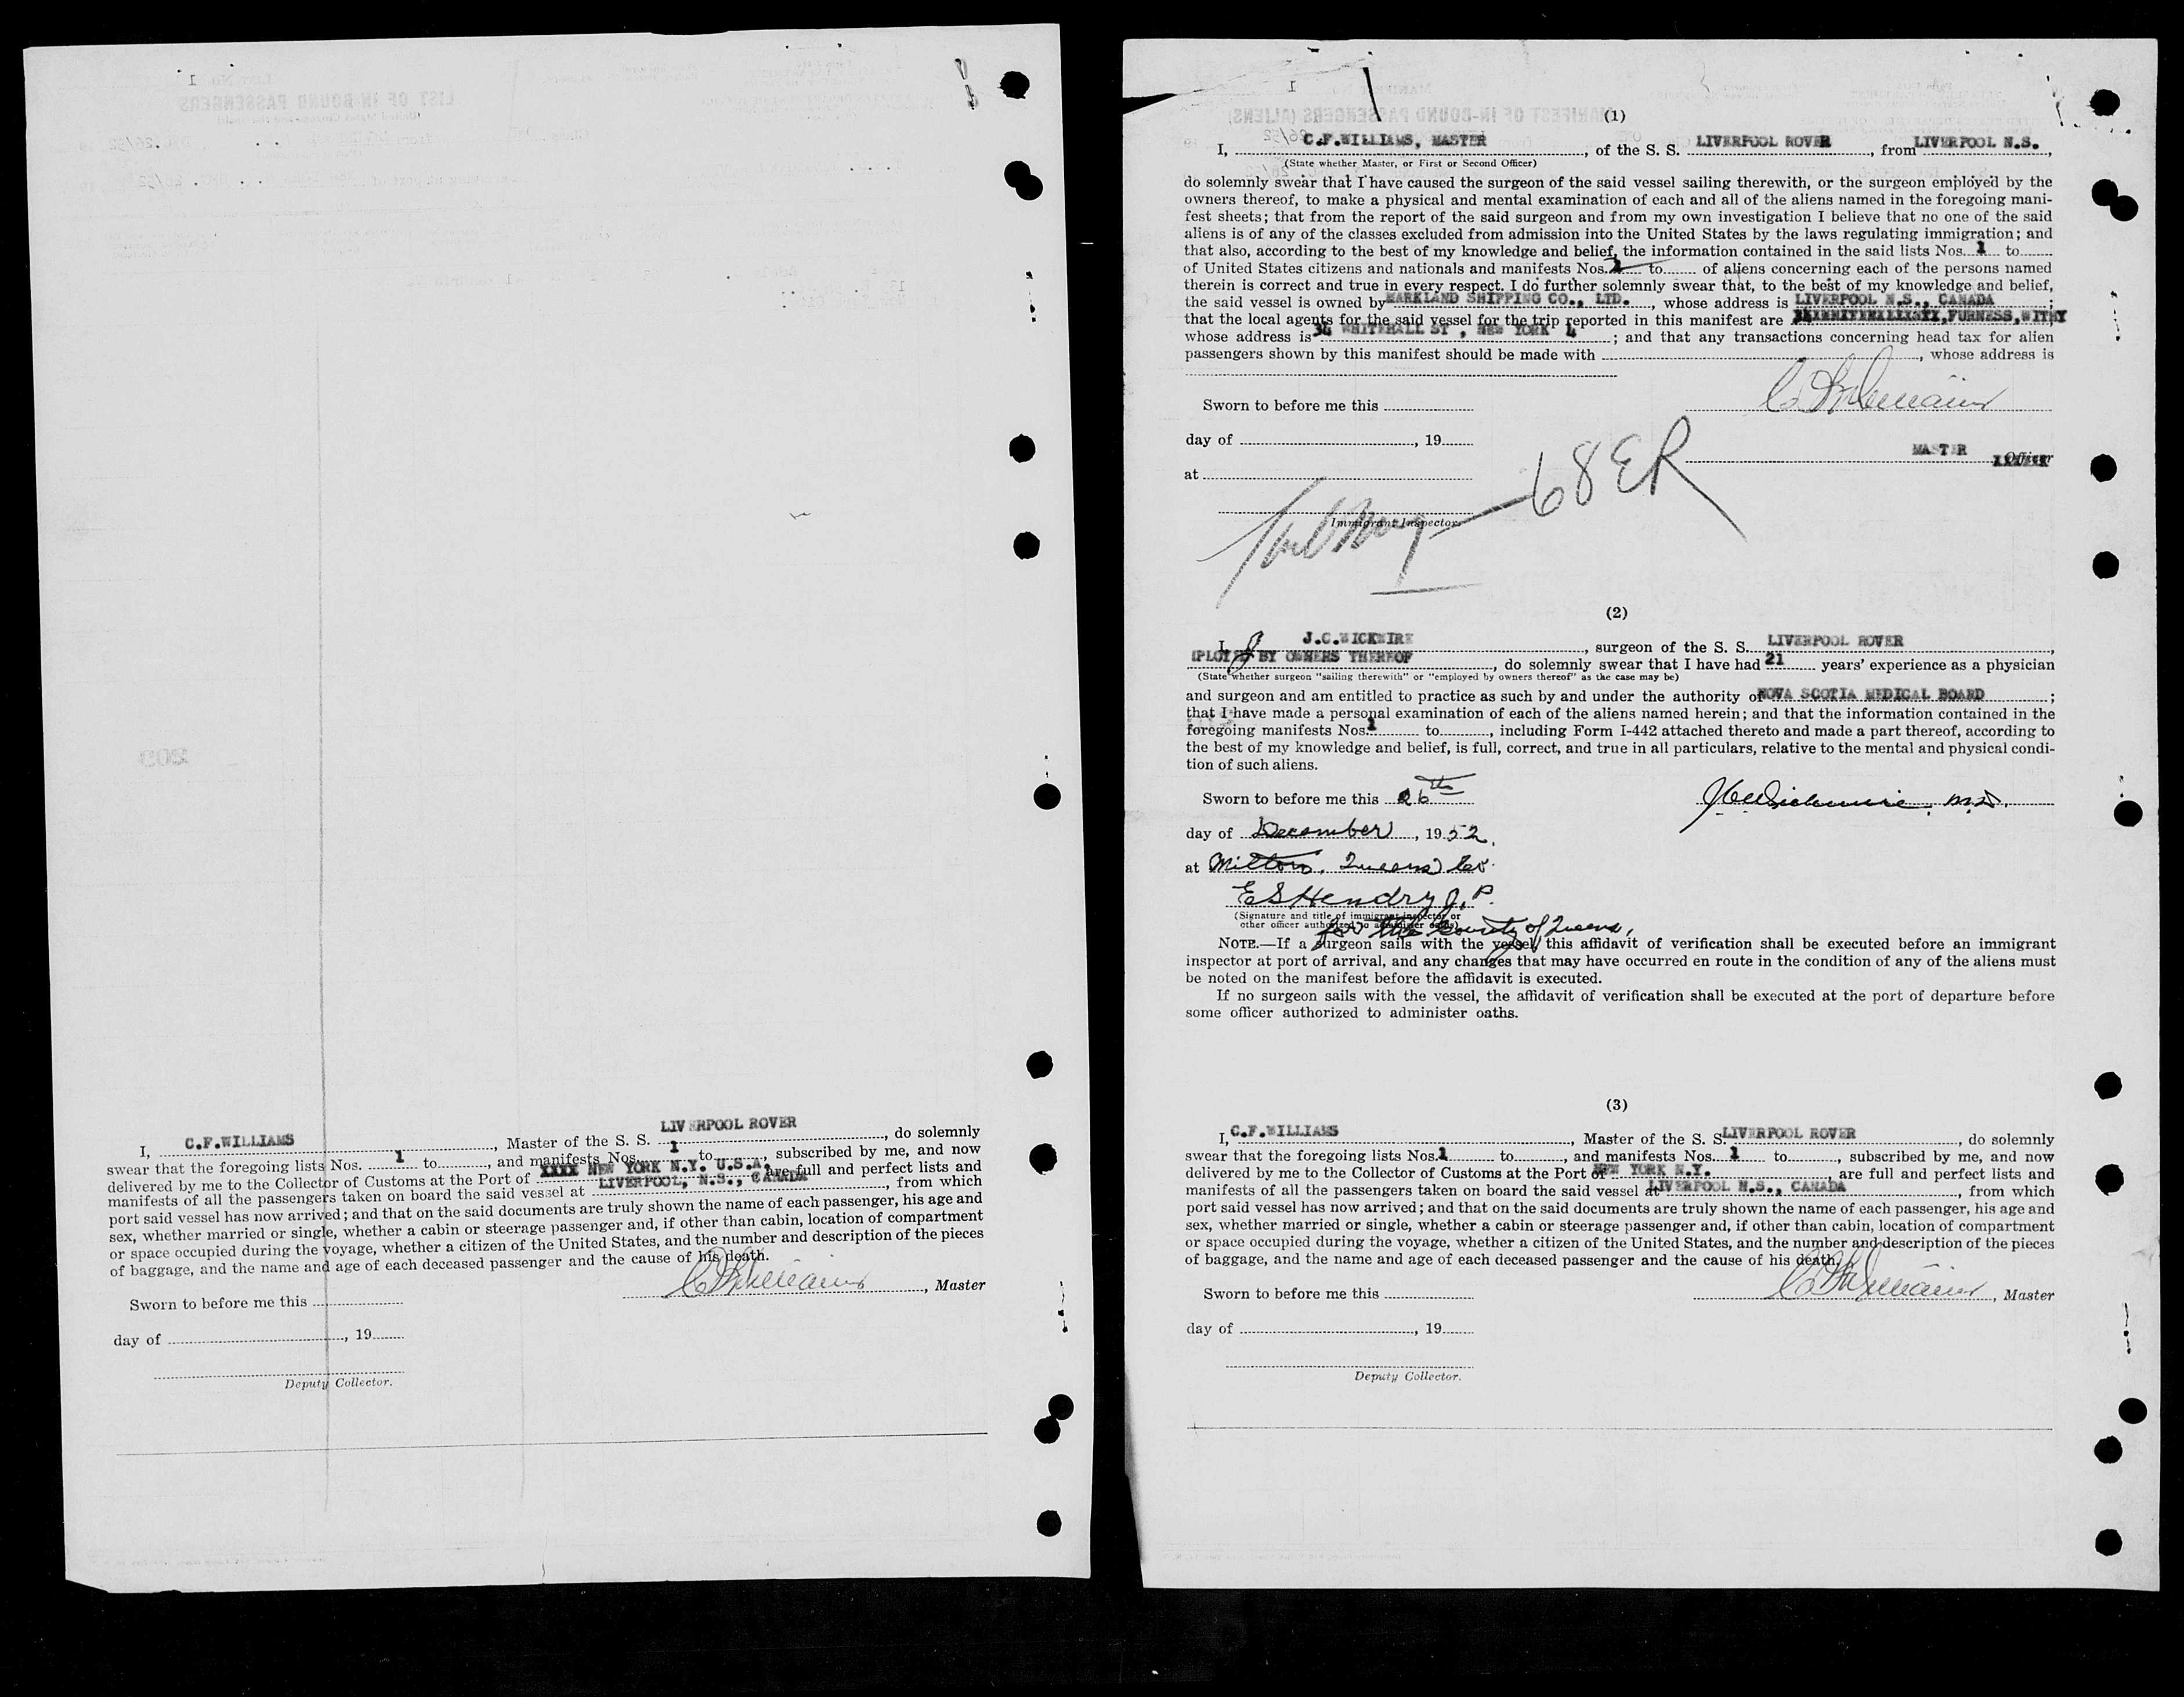 I, C.F.WILLIAMS, Master of the S. S. LIV ERPOOL ROVER, do solemnly
swear that the foregoing lists Nos. 1 to, and manifests Nos. 1 to, subscribed by me, and now
delivered by me to the Collector of Customs at the Port of XXXX NEW YORK N.Y. U.S.A. are full and perfect lists and
manifests of all the passengers taken on board the said vessel at LIVERPOOL, N.S., CANADA, from which
port said vessel has now arrived; and that on the said documents are truly shown the name of each passenger, his age and
sex, whether married or single, whether a cabin or steerage passenger and, if other than cabin, location of compartment
or space occupied during the voyage, whether a citizen of the United States, and the number and description of the pieces
of baggage, and the name and age of each deceased passenger and the cause of his death.
, Master
Sworn to before me this
day of , 19
Deputy Collector.
(1)
I, C.F.WILLIAMS, MASTER, of the S. S. LIVERPOOL ROVER, from LIVERPOOL N.S.,
(State whether Master, or First or Second Officer)
do solemnly swear that I have caused the surgeon of the said vessel sailing therewith, or the surgeon employed by the
owners thereof, to make a physical and mental examination of each and all of the aliens named in the foregoing mani-
fest sheets; that from the report of the said surgeon and from my own investigation I believe that no one of the said
aliens is of any of the classes excluded from admission into the United States by the laws regulating immigration; and
that also, according to the best of my knowledge and belief, the information contained in the said lists Nos. 1 to
of United States citizens and nationals and manifests Nos. to of aliens concerning each of the persons named
therein is correct and true in every respect. I do further solemnly swear that, to the best of my knowledge and belief,
the said vessel is owned by MARKLAND SHIPPING CO., LTD., whose address is LIVERPOOL N.S., CANADA;
that the local agents for the said vessel for the trip reported in this manifest are FURNESS, WITHY
whose address is 34 WHITEHALL ST , NEW YORK 4; and that any transactions concerning head tax for alien
passengers shown by this manifest should be made with , whose address is
Sworn to before me this
day of , 19
MASTER Officer
at
68 ER
Immigrant Inspector.
(2)
I, J.C.WICKWIRE, surgeon of the S. S. LIVERPOOL ROVER,
MPLOYED BY OWNERS THEREOF, do solemnly swear that I have had 21 years' experience as a physician
(State whether surgeon "sailing therewith" or "employed by owners thereof" as the case may be)
and surgeon and am entitled to practice as such by and under the authority of NOVA SCOTIA MEDICAL BOARD;
that I have made a personal examination of each of the aliens named herein; and that the information contained in the
foregoing manifests Nos. 1 to, including Form I-442 attached thereto and made a part thereof, according to
the best of my knowledge and belief, is full, correct, and true in all particulars, relative to the mental and physical condi-
tion of such aliens.
Sworn to before me this 26th J.C. Wickwire, M.D.
day of December, 1952.
at Milton, Queens Co.
E S Hendry J. P.
(Signature and title of immigrant inspector or
other officer authorized to administer oaths)
for the County of Queens,
NOTE.—If a surgeon sails with the vessel, this affidavit of verification shall be executed before an immigrant
inspector at port of arrival, and any changes that may have occurred en route in the condition of any of the aliens must
be noted on the manifest before the affidavit is executed.
If no surgeon sails with the vessel, the affidavit of verification shall be executed at the port of departure before
some officer authorized to administer oaths.
(3)
I, C.F.WILLIAMS, Master of the S. S. LIVERPOOL ROVER, do solemnly
swear that the foregoing lists Nos. 1 to, and manifests Nos. 1 to, subscribed by me, and now
delivered by me to the Collector of Customs at the Port of NEW YORK N.Y. are full and perfect lists and
manifests of all the passengers taken on board the said vessel at LIVERPOOL N.S., CANADA, from which
port said vessel has now arrived; and that on the said documents are truly shown the name of each passenger, his age and
sex, whether married or single, whether a cabin or steerage passenger and, if other than cabin, location of compartment
or space occupied during the voyage, whether a citizen of the United States, and the number and description of the pieces
of baggage, and the name and age of each deceased passenger and the cause of his death.
, Master
Sworn to before me this
day of , 19
Deputy Collector.